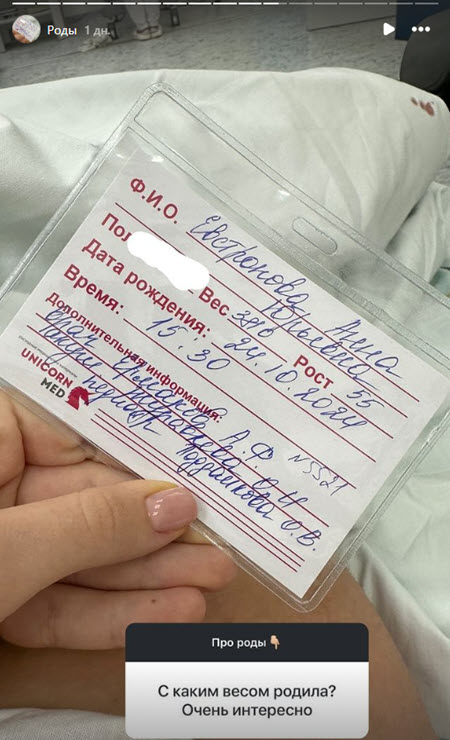 Роды 1 дн.
Ф.И.О. Евстропова Анна
Юрьевна
Пол Вес 3810 Рост 55
Дата рождения: 24.10.2024
Время: 15.30
Дополнительная информация: №5521
врач А.Ф.
О.И
педиатр О.В.
UNICORN
MED
Про роды👇🏼
С каким весом родила?
Очень интересно